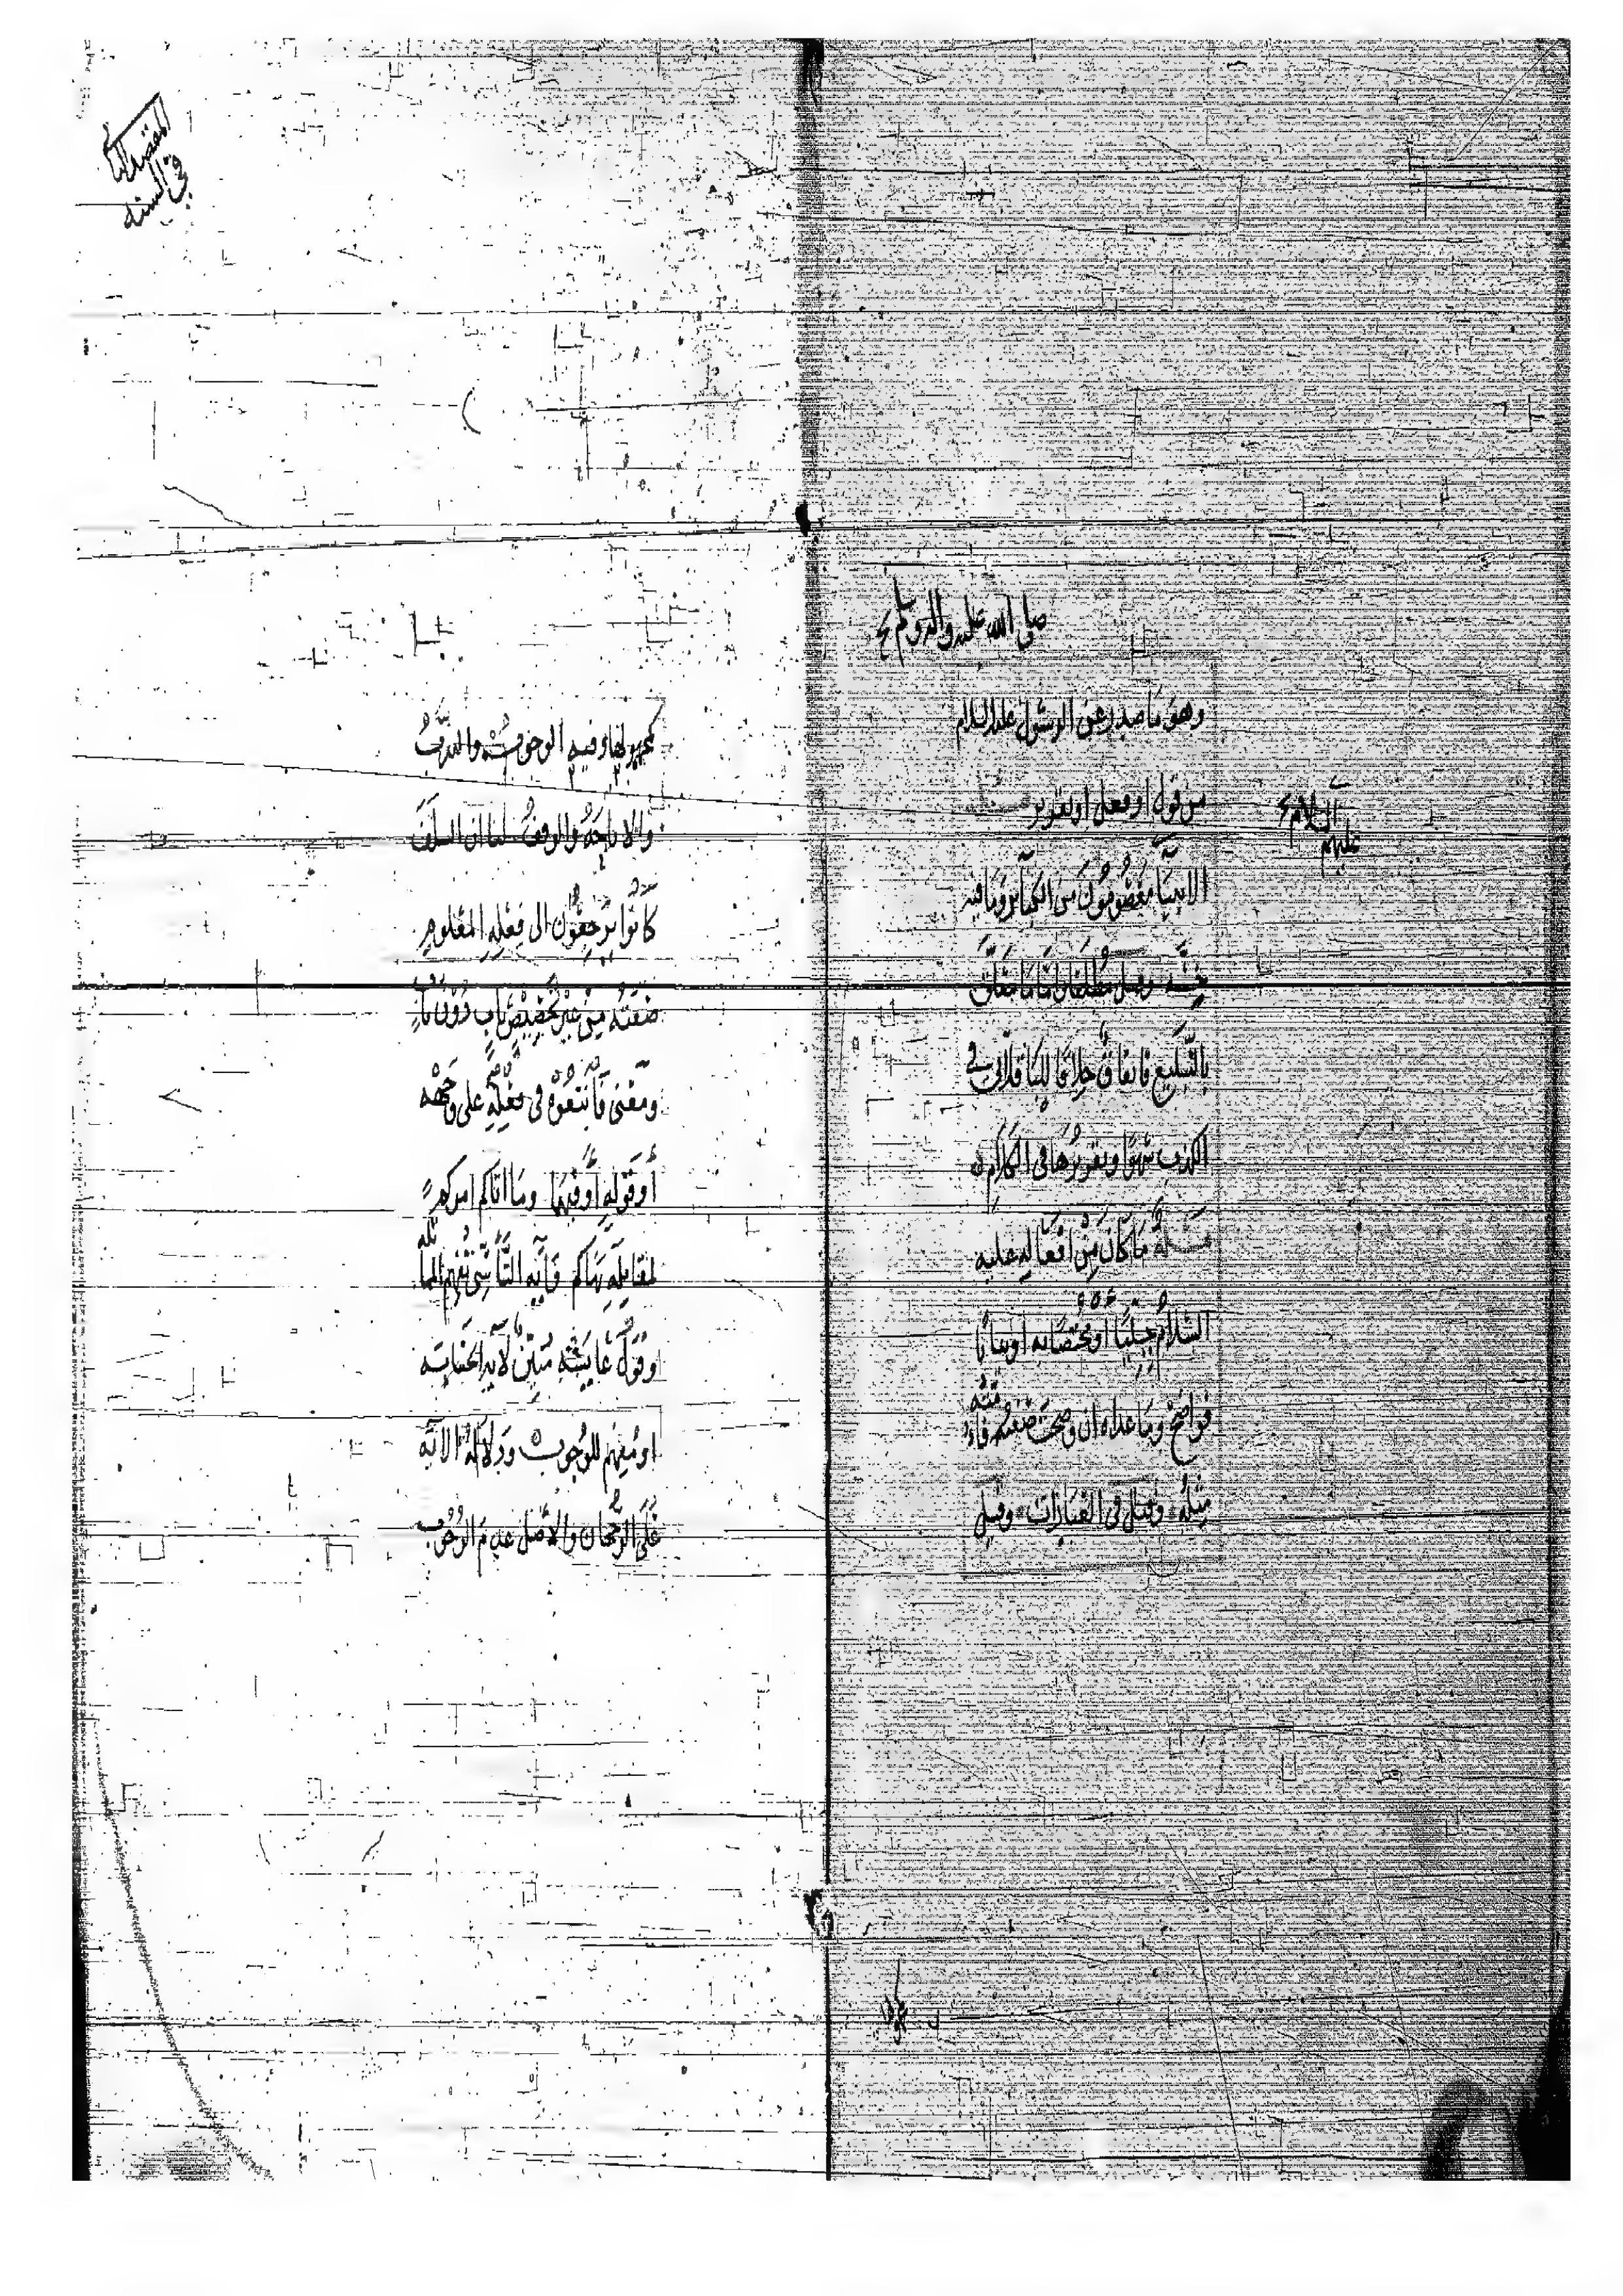 صلى الله عليه واله وسلم
وهو ما صدر عن الرسول عليه السلام
من قول او فعل او تقرير
عليهم السلام
الانبيا معصومون من الكباير وما فيه
خسة وقيل مطلقا اما ما يتعلق
بالتبليغ فاتفاق خلافا للباقلاني في
الكذب سهوا وتقريرها في الكلام
مسألة ما كان من افعاله عليه
السلام جبليا او مختصا به او بيانا
فواضح وما عداه ان وضحت صفته فامته
مثله وقيل في العبادات وقيل
المقصد
في السنه
كمجهولها وفيه الوجوب والندب
والاباحة والوقف لنا ان السلف
كانوا يرجعون الى فعله المعلوم
صفته من غير تخصيص باب دون باب
ومعنى فاتبعوه في فعله على وجهه
أو قوله أو فيهما وما اتاكم امركم
لمقابلة نهاكم فآية التأسي تفهم المماثله
وقول عايشه مبين لآية
او مفهم للوجوب ودلالة الآية
على الرجحان والاصل عدم الوجوب